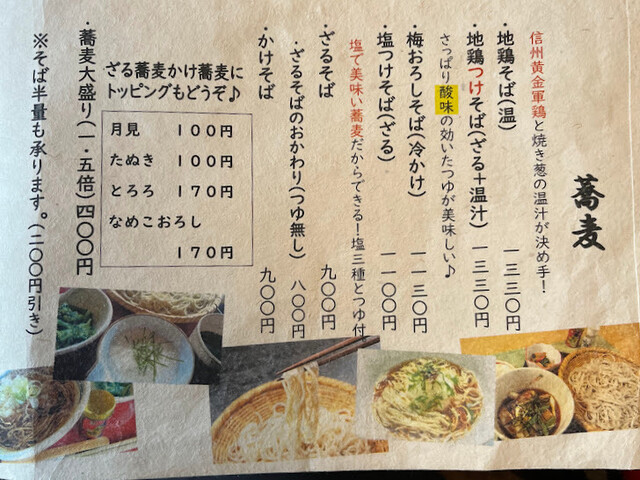 蕎麦
信州黄金軍鶏と焼き葱の温汁が決め手！
・地鶏そば(温) 一三三〇円
・地鶏つけそば(ざる+温汁) 一三三〇円
さっぱり酸味の効いたつゆが美味しい♪
・梅おろしそば(冷かけ) 一一三〇円
・塩つけそば(ざる) 一一〇〇円
塩で美味い蕎麦だからできる！塩三種とつゆ付
・ざるそば 九〇〇円
・ざるそばのおかわり(つゆ無し) 八〇〇円
・かけそば 九〇〇円
ざる蕎麦かけ蕎麦に
トッピングもどうぞ♪
月見 100円
たぬき 100円
とろろ 170円
なめこおろし
170円
・蕎麦大盛り(一・五倍)四〇〇円
※そば半量も承ります。(二〇〇円引き)